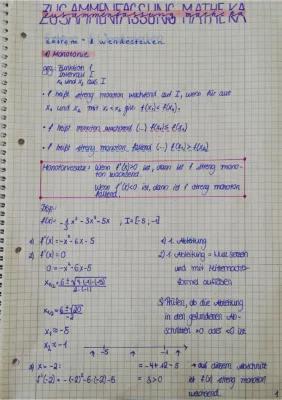 ZUSAMMENFASSUNG MATHEKA
zusammenfassung matheka
Extrem- & Wendestellen
1) Monotonie
geg: Funktion f
Intervall I
x₁ und x₂ aus I
• f heißt streng monoton wachsend auf I, wenn für alle
x₁ und x₂ mit x₁<x₂ gilt f(x₁)<f(x₂).
• f heißt monoton wachsend (...) f(x₁)≤f(x₂)
• f heißt streng monoton fallend (...) f(x₁)>f(x₂)
Monotoniesatz: Wenn f'(x)>0 ist, dann ist f streng mono-
ton wachsend.
Wenn f'(x)<0 ist, dann ist f streng monoton
fallend.
Bsp.:
f(x)= -1/3x³-3x²-5x , I=[-5;-1]
1) f'(x)=-x²-6x-5 1) 1. Ableitung
2) f'(x)=0 2) 1. Ableitung = Null setzen
0=-x²-6x-5 und mit Mitternachts-
formel auflösen
x₁,₂ = 6±√
x₁,₂= 6±√20 / -2 3) Prüfen, ob die Ableitung
in den gefundenen Ab-
x₁=-5 schnitten >0 oder <0 ist
x₂=-1
-5 -1
3) x=-2: =-4+12-5 → auf diesem Abschnitt
f'(-2)=-(-2)²-6·(-2)-5 = 3>0 ist f(x) streng monoton
wachsend.
1